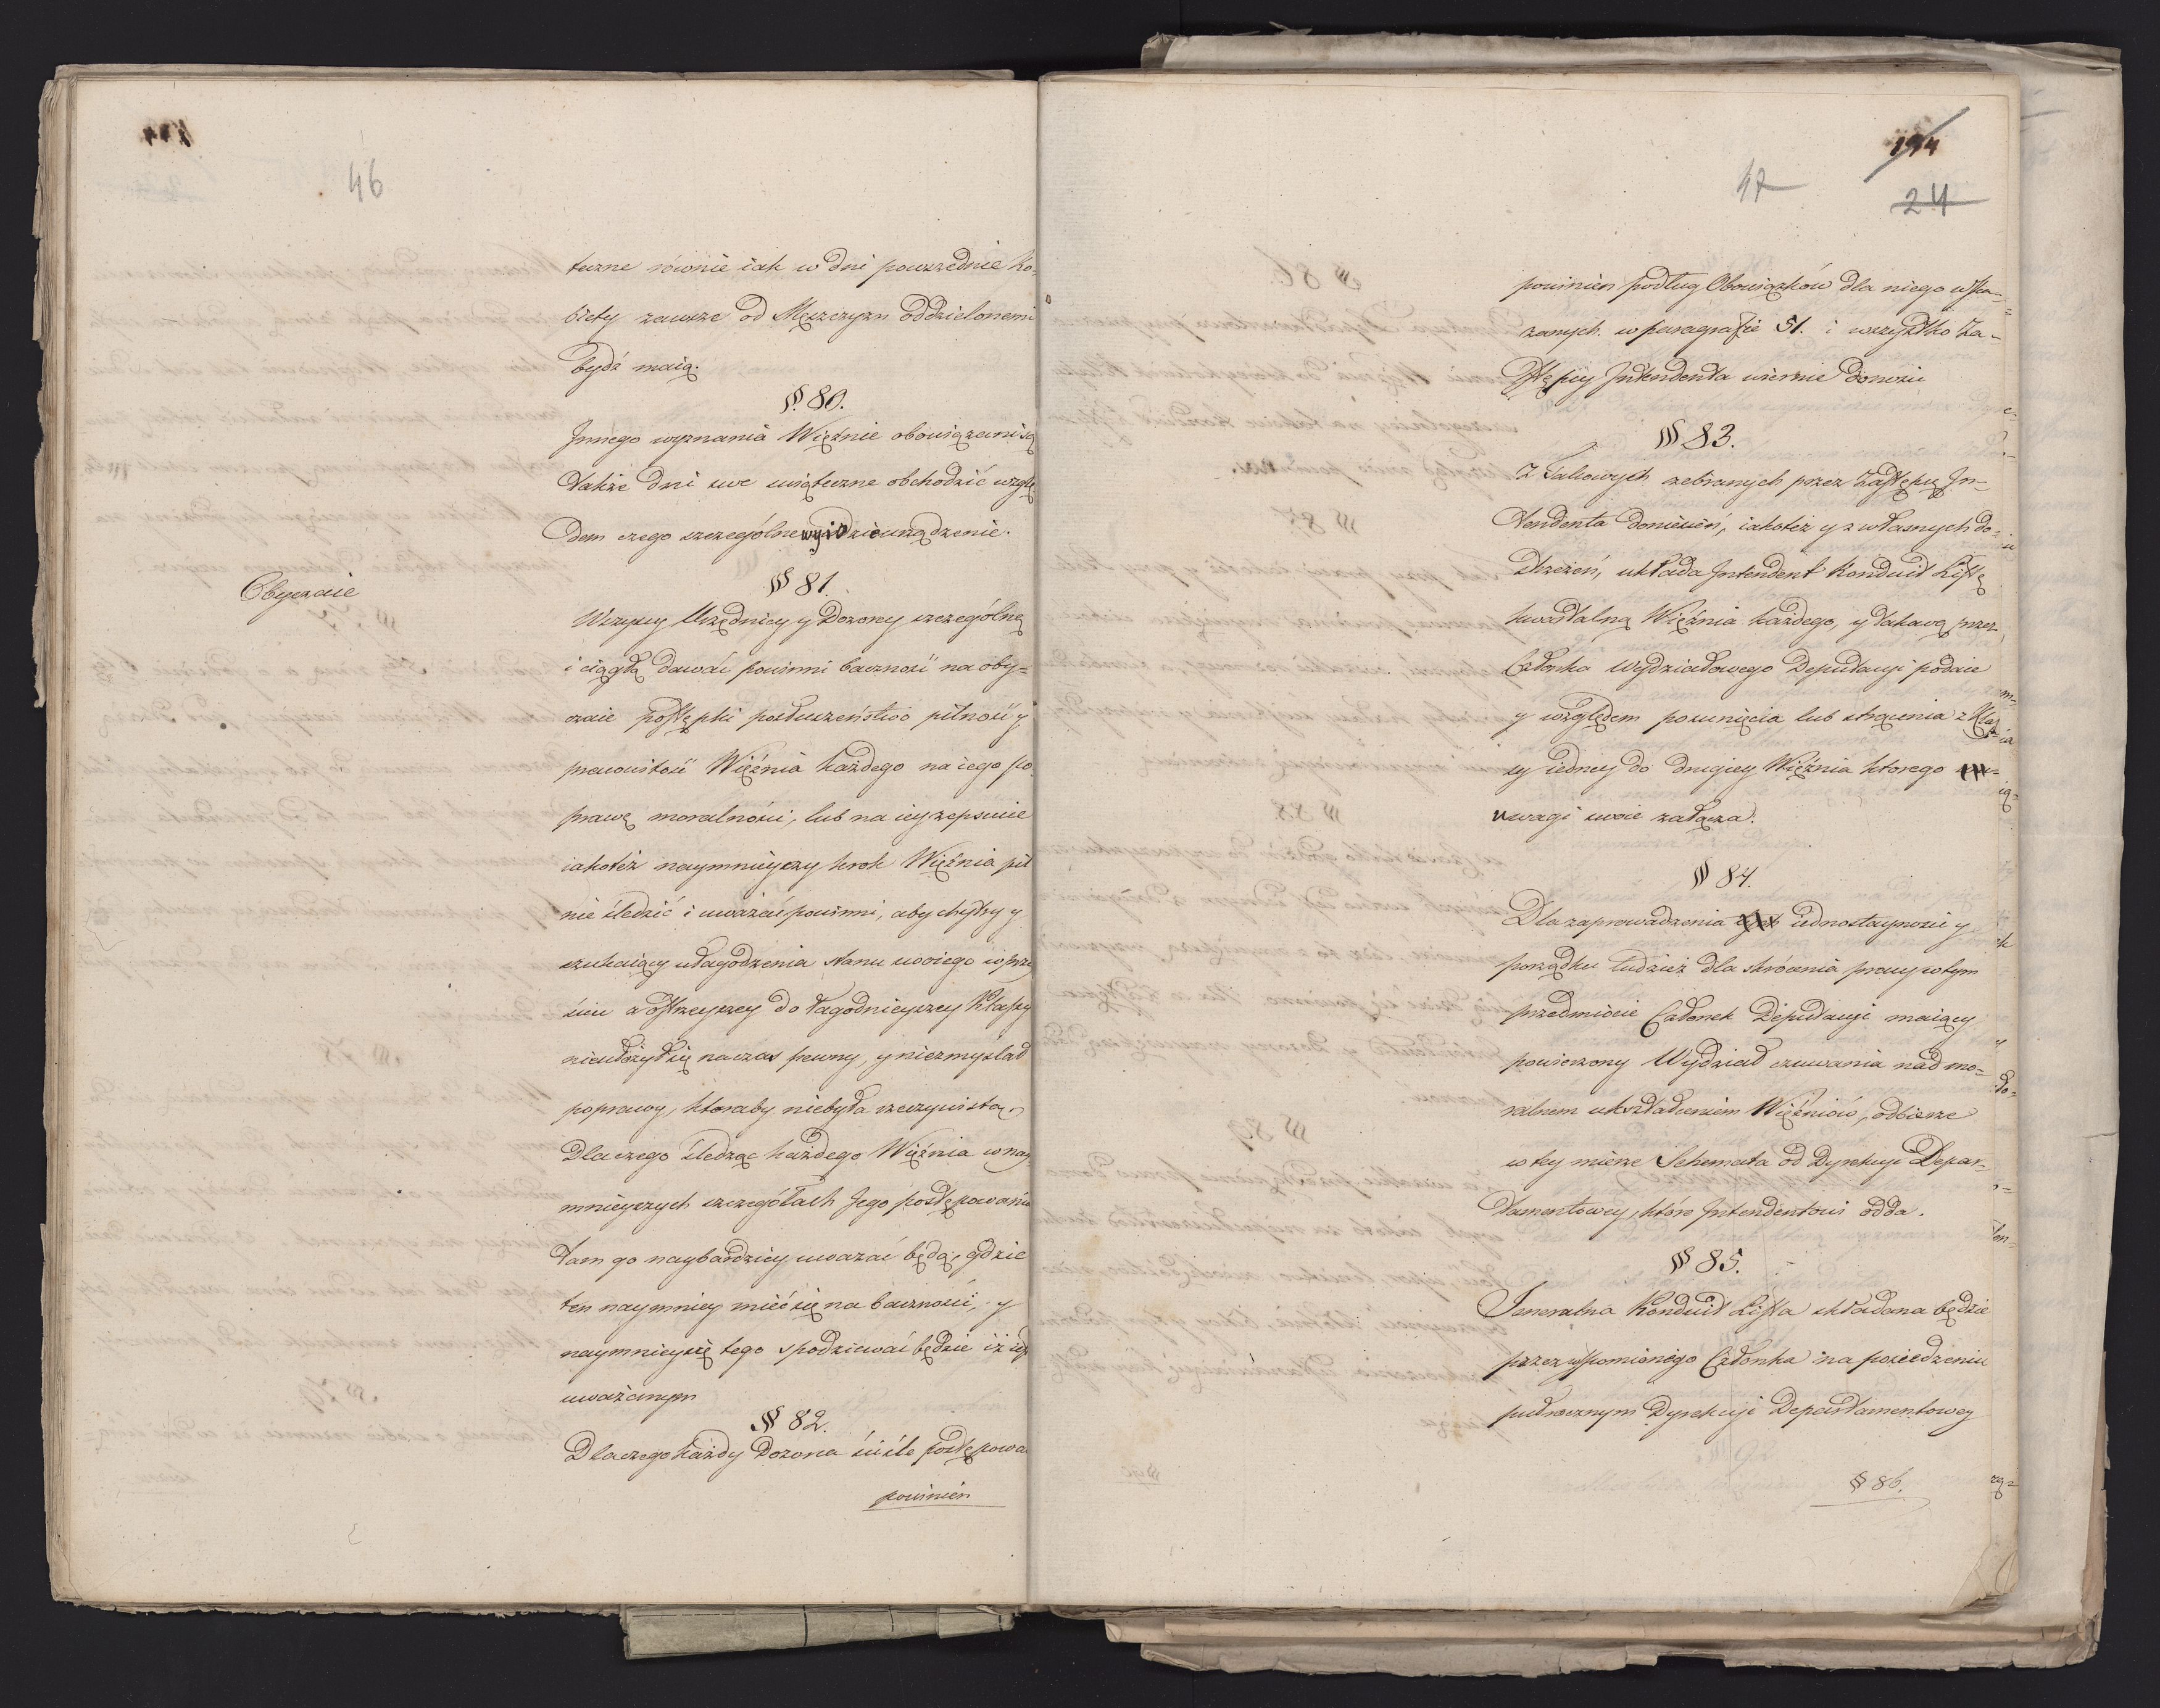 46
teczne równie iak w dni powszednie ko-
biety zawsze od Męszczyzn oddzielonemi
bydź maią.
§. 80.
Innego wyznania Więźnie obowiązani są
także dni swe świąteczne obchodzić wzglę
dem czego szczególne wyidzie urządzenie.
§ 81.
Obyczaie
Wszyscy Urzędnicy y Dozorcy szczególną
i ciągłą dawać powinni baczność na oby=
czaie postępki posłuszeństwo pilność y
pracowitość Więźnia każdego na iego po
prawę moralności, lub na iey zepsucie
iakoteż naymnieyszy krok Więźnia pil
nie śledzić i uważać powinni, aby chytry y
szukaiący ułagodzenia stanu swoiego w prze
ściu z ostrzeyszey do łagodnieyszey Klassy
nieułożył się na czas pewny, y niezmyślał
poprawy, któraby niebyła rzeczywistą,
Dlaczego śledząc każdego Więźnia w nay
mnieyszych szczegółach Jego postępowania
tam go naybardziey uważać będą, gdzie
ten naymniey mieć się na baczności, y
naymniey się tego spodziewać będzie iż iest
uważanym
§ 82.
Dlaczego każdy Dozorca ściśle postępowa
powinien
194
47
24
powinien podług Obowiązków dla niego wska=
zanych w paragrafie 51. i wszystko Za-
stępcy Intendenta wiernie donosić
§ 83.
Z Takowych zebranych przez Zastępcę In-
tendenta doniesień, iakoteż y z własnych do-
strzeżeń, układa Intendent Konduit Listę
kwartalną Więźnia każdego, y takową przez
Członka Wydziałowego Deputacyi podaie
y względem posunięcia lub strącenia z Klas
sy iedney do drugiey Więźnia ktorego
uwagi swoie załącza.
§ 84.
Dla zaprowadzenia iednostayności y
porządku tudzież dla skrócenia pracy w tym
przedmiocie Członek Deputacyi maiący
powierzony Wydział czuwania nad mo=
ralnem ukształceniem Więźniów, odbierze
w tey mierze Schemata od Dyrekcyi Depar-
tamentowey, które Intendentowi odda.
§ 85.
Jeneralna Konduit Lista składana będzie
przez wspomnionego Członka na posiedzeniu
półrocznym Dyrekcyi Departamentowey
§ 86.